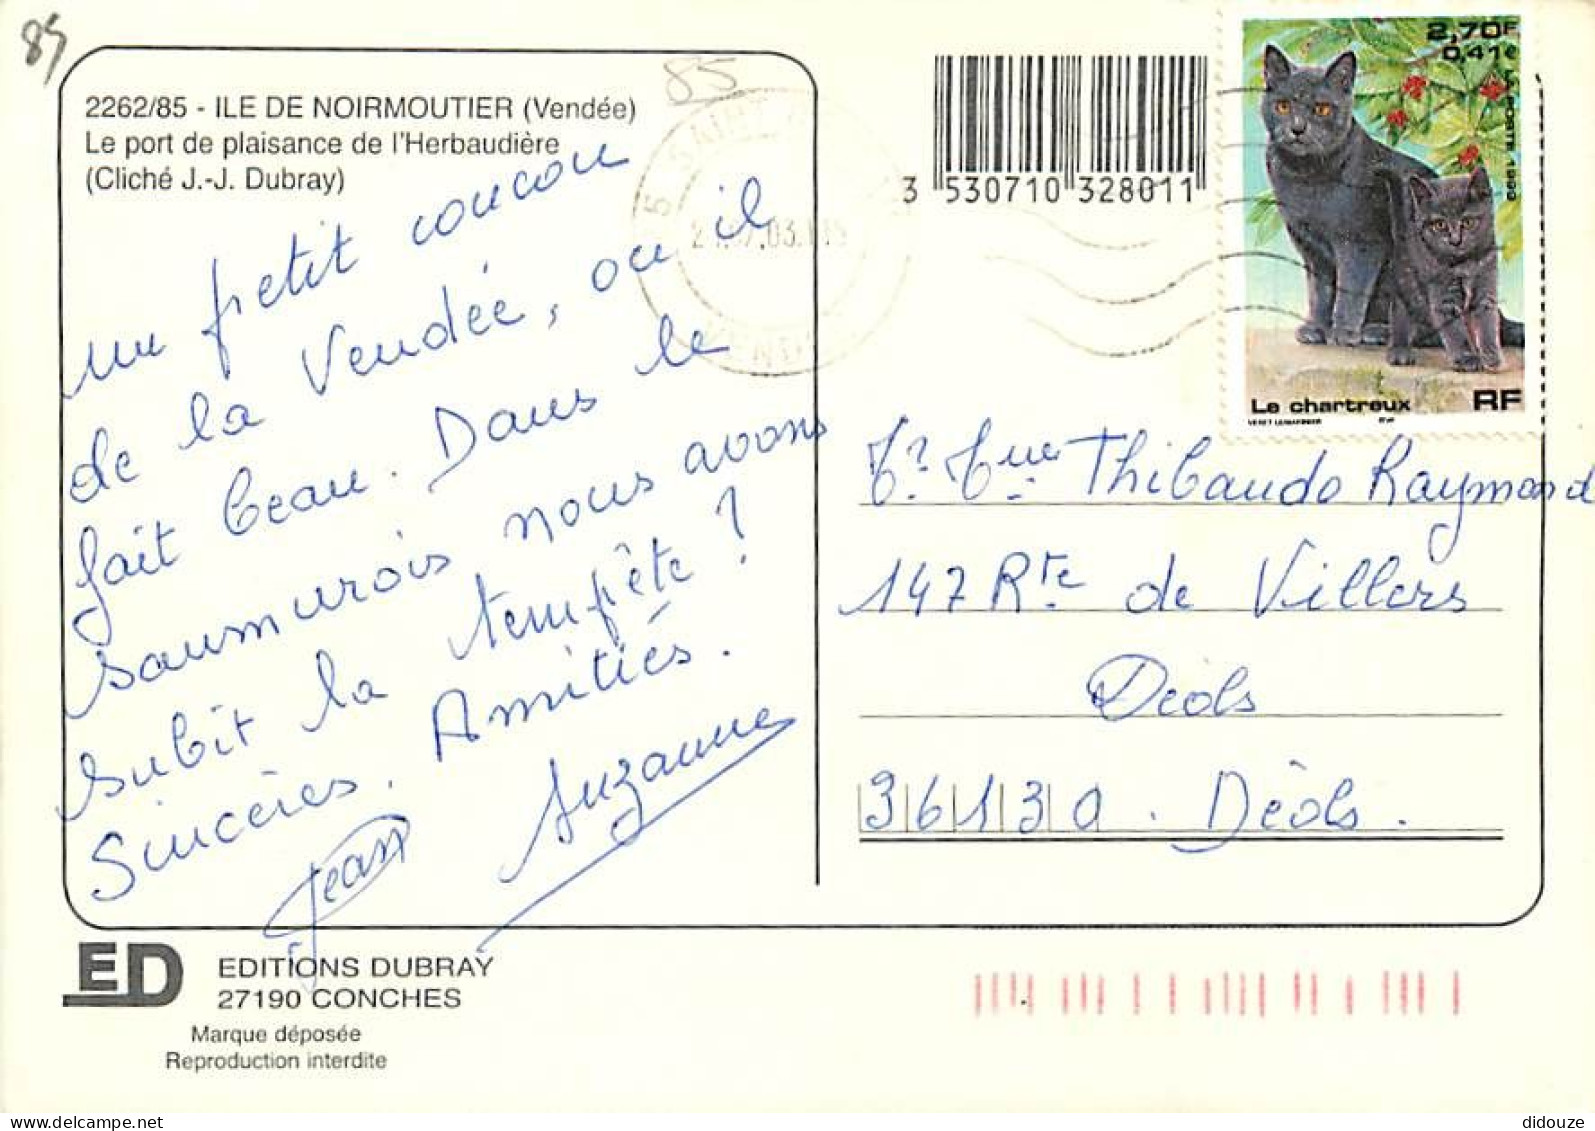 85
2262/85 - ILE DE NOIRMOUTIER (Vendée)
Le port de plaisance de l'Herbaudière
(Cliché J.-J. Dubray)
un petit coucou
de la Vendée, ou il
fait beau. Dans le
saumurois nous avons
subit la tempête !
Sincères Amitiés.
Jean Suzanne
ED
EDITIONS DUBRAY
27190 CONCHES
Marque déposée
Reproduction interdite
85
SAINT
3 530710 328011
2,70F
0,41€
LA POSTE 1999
Le chartreux
RF
Mr Mme Thibaudo Raymond
147 Rte de Villers
Déols
36130. Déols.
didouze